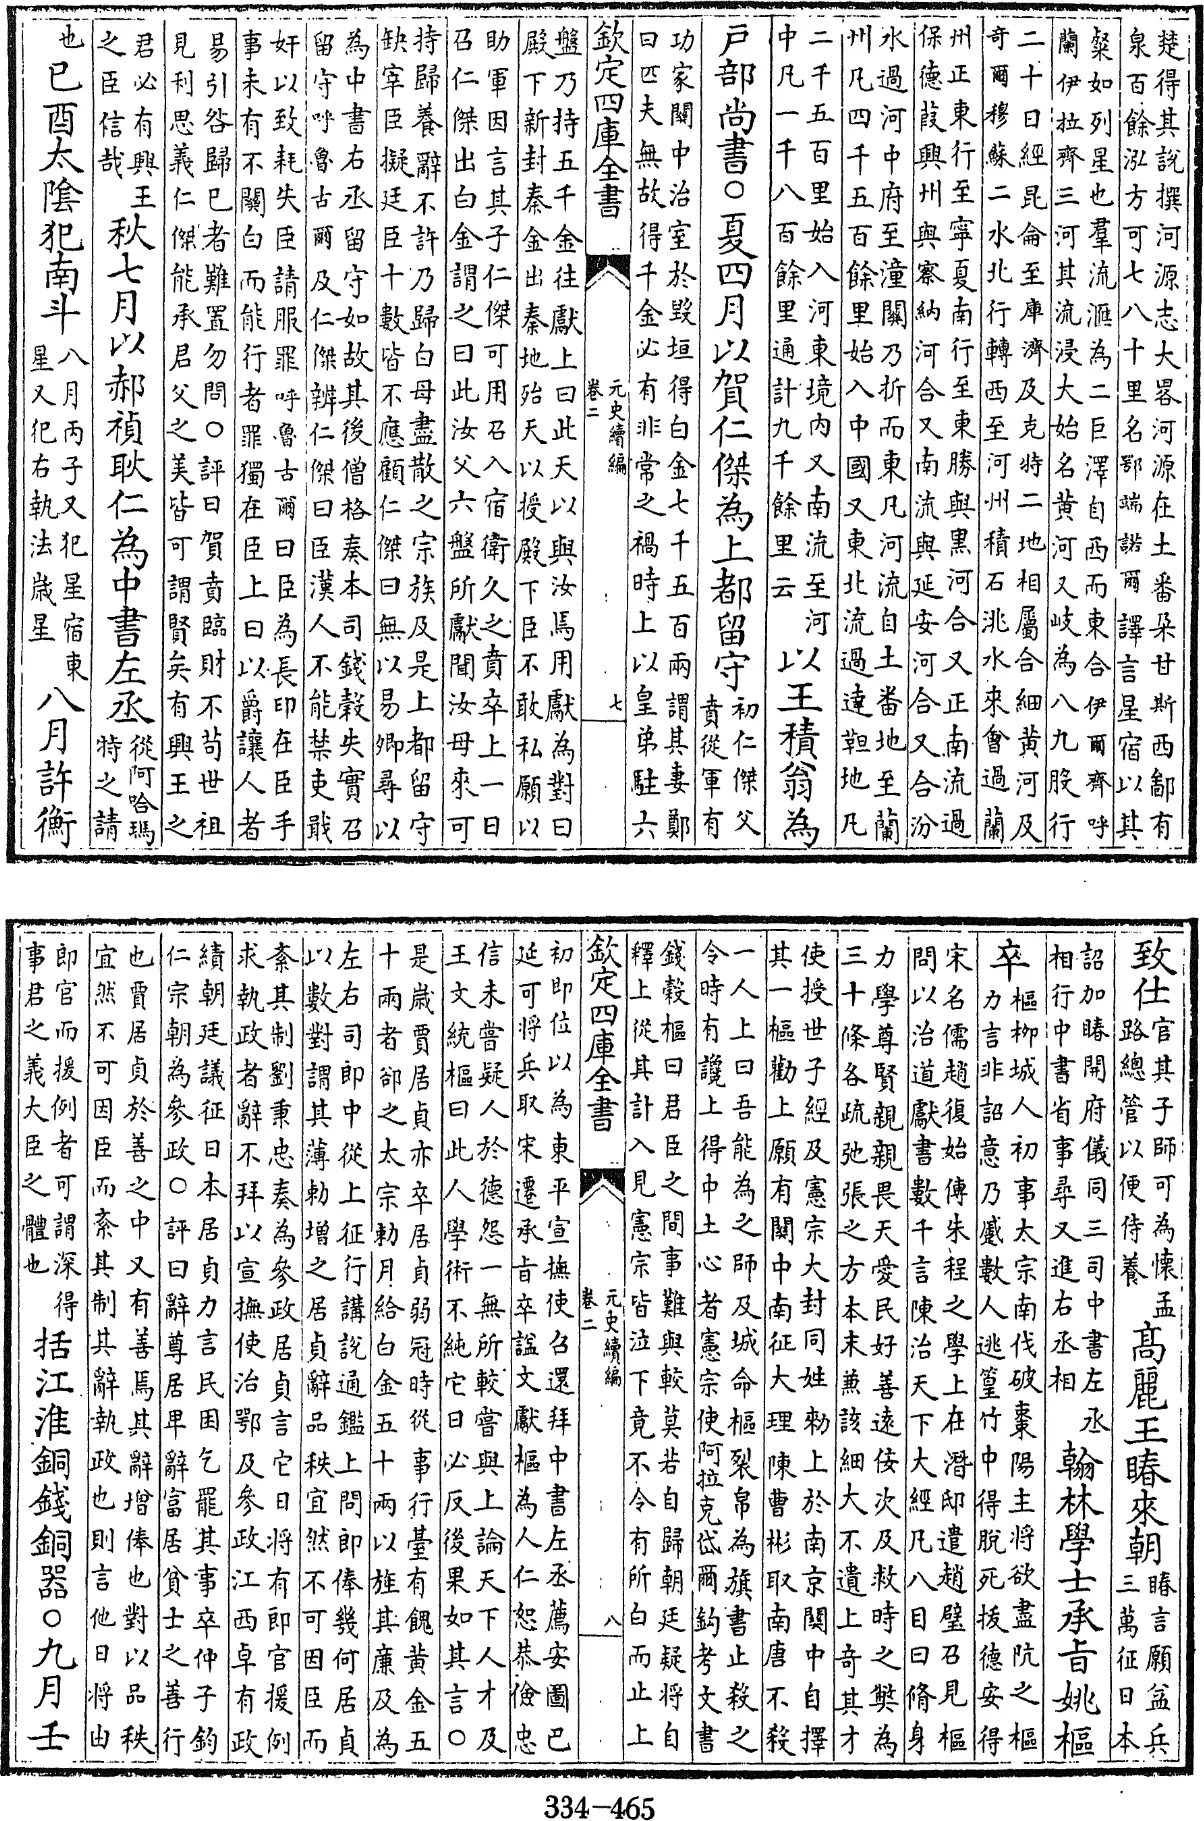 楚得其說撰河源志大畧河源在土番朶甘斯西鄙有
泉百餘泓方可七八十里名鄂端諾爾譯言星宿以其
粲如列星也羣流滙為二巨澤自西而東合伊爾齊呼
蘭伊拉齊三河其流浸大始名黄河又岐為八九股行
二十日經昆侖至庫濟及克特二地相屬合細黄河及
奇爾穆蘇二水北行轉西至河州積石洮水來㑹過蘭
州正東行至寧夏南行至東勝與黒河合又正南流過
保德葭興州與察納河合又南流與延安河合又合汾
水過河中府至潼關乃折而東凡河流自土番地至蘭
州凡四千五百餘里始入中國又東北流過達靼地凡
二千五百里始入河東境内又南流至河
中凡一千八百餘里通計九千餘里云
以王積翁為
戸部尚書○夏四月以賀仁傑為上都留守
初仁傑父
賁從軍有
功家關中治室於毁垣得白金七千五百兩謂其妻鄭
曰匹夫無故得千金必有非常之禍時上以皇弟駐六
欽定四庫全書
元史續編
卷二
七
盤乃持五千金往獻上曰此天以與汝焉用獻為對曰
殿下新封秦金出秦地殆天以授殿下臣不敢私願以
助軍因言其子仁傑可用召入宿衛久之賁卒上一日
召仁傑出白金謂之曰此汝父六盤所獻聞汝母來可
持歸養辭不許乃歸白母盡散之宗族及是上都留守
缺宰臣擬廷臣十數皆不應顧仁傑曰無以易卿尋以
為中書右丞留守如故其後僧格奏本司錢穀失實召
留守呼魯古爾及仁傑辨仁傑曰臣漢人不能禁吏戢
奸以致耗失臣請服罪呼魯古爾曰臣為長印在臣手
事未有不關白而能行者罪獨在臣上曰以爵讓人者
易引咎歸已者難置勿問○評曰賀賁臨財不苟世祖
見利思義仁傑能承君父之美皆可謂賢矣有興王之
君必有興王
之臣信哉
秋七月以郝禎耿仁為中書左丞
從阿哈瑪
特之請
也
已酉太陰犯南斗
八月丙子又犯星宿東
星又犯右執法歳星
八月許衡
致仕
官其子師可為懷孟
路總管以便侍養
髙麗王賰來朝
賰言願益兵
三萬征日本
詔加賰開府儀同三司中書左丞
相行中書省事尋又進右丞相
翰林學士承㫖姚樞
卒
樞柳城人初事太宗南伐破棗陽主将欲盡阬之樞
力言非詔意乃蹙數人逃篁竹中得脫死拔德安得
宋名儒趙復始傳朱程之學上在潛邸遣趙璧召見樞
問以治道獻書數千言陳治天下大經凡八目曰脩身
力學尊賢親親畏天愛民好善逺佞次及救時之𡚁為
三十條各疏弛張之方本末兼該細大不遺上竒其才
使授世子經及憲宗大封同姓勅上於南京關中自擇
其一樞勸上願有關中南征大理陳曹彬取南唐不殺
一人上曰吾能為之師及城命樞裂帛為旗書止殺之
令時有讒上得中土心者憲宗使阿拉克岱爾鈎考文書
錢穀樞曰君臣之間事難與較莫若自歸朝廷疑将自
釋上從其計入見憲宗皆泣下竟不令有所白而止上
欽定四庫全書
元史續編
卷二
八
初即位以為東平宣撫使召還拜中書左丞薦安圖已
延可将兵取宋遷承㫖卒諡文獻樞為人仁恕恭儉忠
信未嘗疑人於德怨一無所較嘗與上論天下人才及
王文統樞曰此人學術不純它日必反後果如其言○
是歳賈居貞亦卒居貞弱冠時從事行臺有餽黄金五
十兩者郤之太宗勅月給白金五十兩以旌其廉及為
左右司郎中從上征行講說通鑑上問郎俸幾何居貞
以數對謂其薄勅增之居貞辭品秩宜然不可因臣而
紊其制劉秉忠奏為參政居貞言它日将有郎官援例
求執政者辭不拜以宣撫使治鄂及參政江西卓有政
績朝廷議征日本居貞力言民困乞罷其事卒仲子鈞
仁宗朝為參政○評曰辭尊居卑辭富居貧士之善行
也賈居貞於善之中又有善焉其辭增俸也對以品秩
宜然不可因臣而紊其制其辭執政也則言他日将由
郎官而援例者可謂深得
事君之義大臣之體也
括江淮銅錢銅器○九月壬
334-465